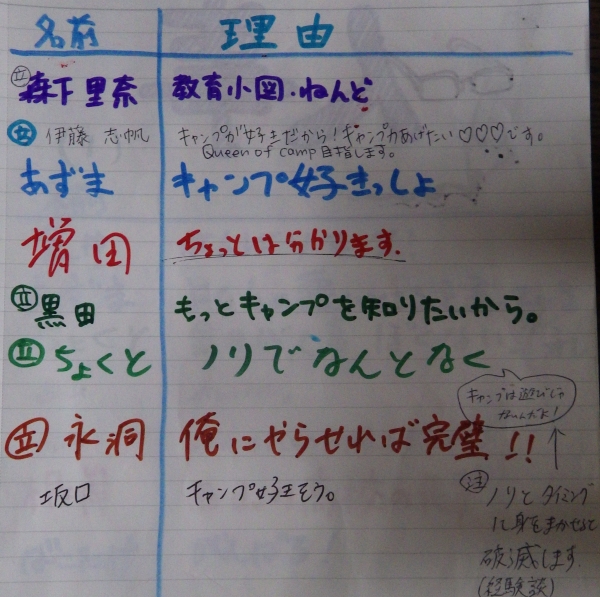 名前 理由
立 森下里奈 教育小図・ねんど
立 伊藤 志帆 キャンプが好きだから!キャンプ力あげたい♡♡♡です。
Queen of camp目指します。
あずま キャンプ好きっしょ
増田 ちょっとは分かります.
立 黒田 もっとキャンプを知りたいから。
立 ちょくと ノリでなんとなく
キャンプは遊びじゃ
ないんだよ!
立 永洞 俺にやらせれば完璧!!
坂口 キャンプ好きそう。
注 ノリとタイミング
に身をまかせると
破滅します.
(経験談)